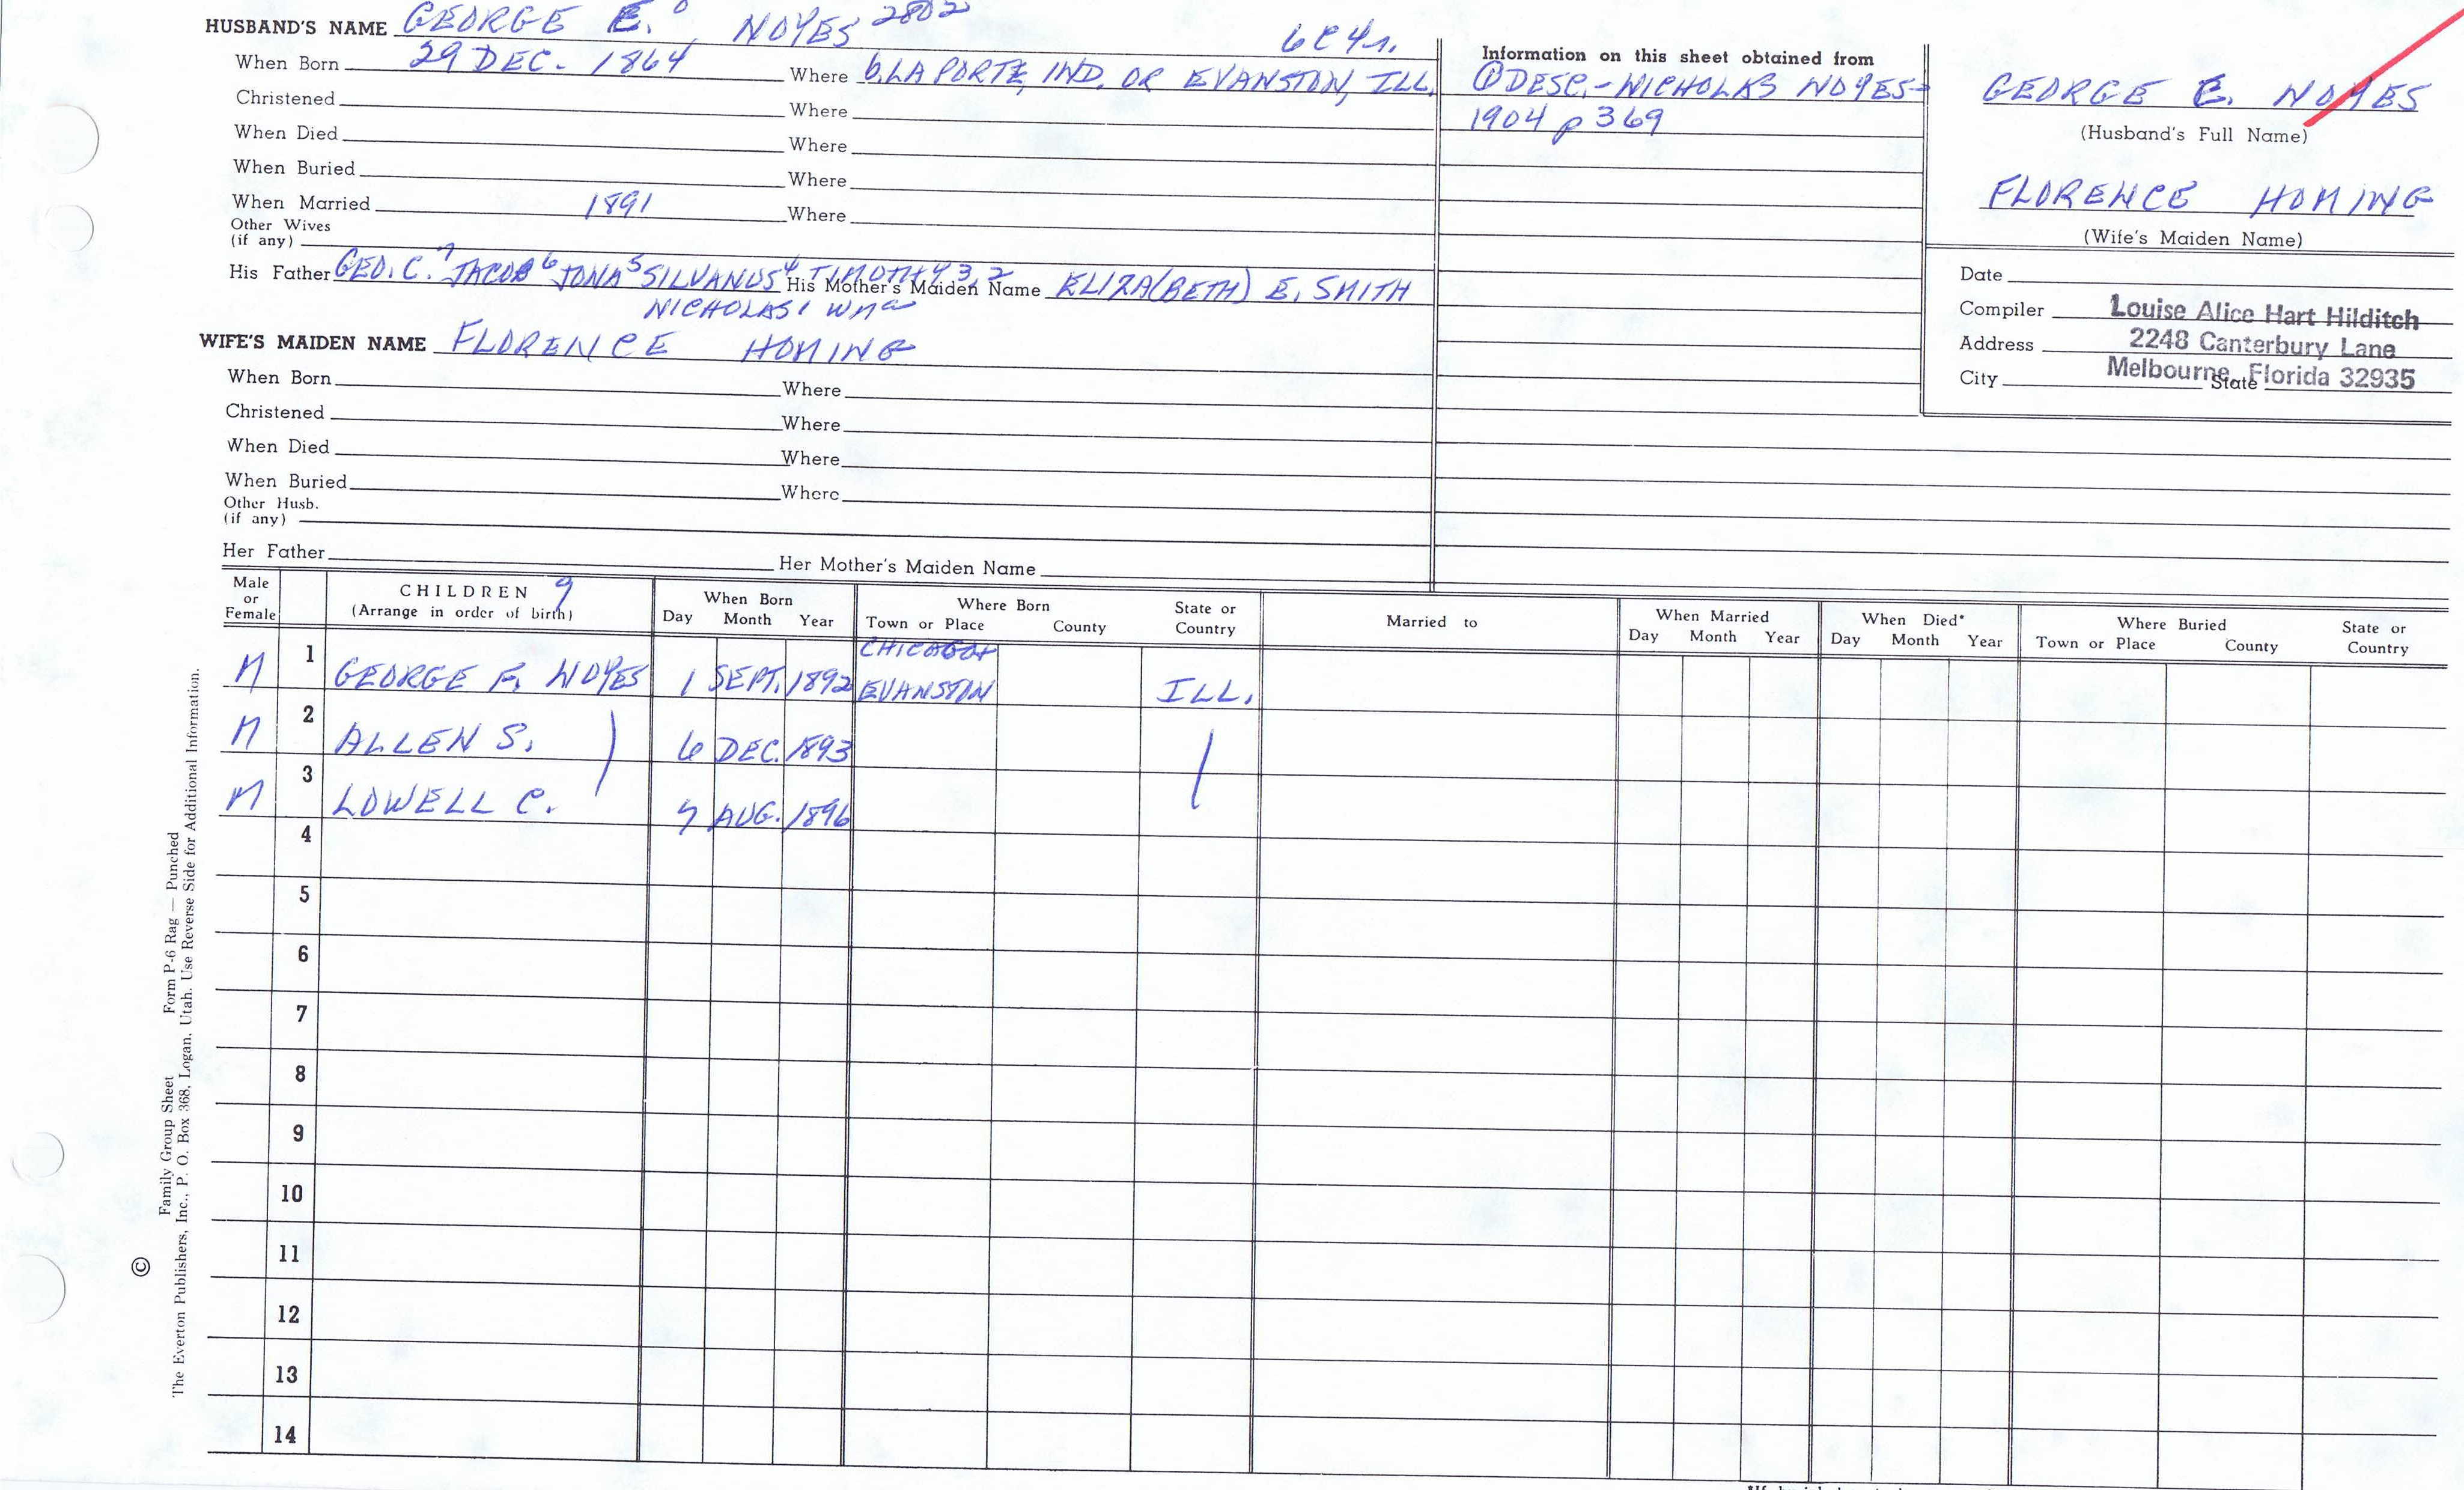 HUSBAND'S NAME GEORGE E. NOYES 2802
6C4r.
When Born 29 DEC. 1864 Where b. LAPORTE, IND. OR EVANSTON, ILL.
Christened Where
When Died Where
When Buried Where
When Married 1891 Where
Other Wives
(if any)
His Father GEO. C.7 JACOB6 JONA5 SILVANUS4 TIMOTHY3,2 His Mother's Maiden Name ELIZA(BETH) E. SMITH
NICHOLAS1 Wm
WIFE'S MAIDEN NAME FLORENCE HOMING
When Born Where
Christened Where
When Died Where
When Buried Where
Other Husb.
(if any)
Her Father Her Mother's Maiden Name
Information on this sheet obtained from
① DESC.-NICHOLAS NOYES-
1904 p 369
GEORGE E. NOYES
(Husband's Full Name)
FLORENCE HOMING
(Wife's Maiden Name)
Date
Compiler Louise Alice Hart Hilditch
Address 2248 Canterbury Lane
City Melbourne, State Florida 32935
Male or Female CHILDREN 9 (Arrange in order of birth) When Born Day Month Year Where Born Town or Place County State or Country Married to When Married Day Month Year When Died* Day Month Year Where Buried Town or Place County State or Country
CHICAGO
M 1 GEORGE F. NOYES 1 SEPT. 1892 EVANSTON ILL.
M 2 ALLEN S. 6 DEC. 1893
M 3 LOWELL C. 7 AUG. 1896
4
5
6
7
8
9
10
11
12
13
14
© Family Group Sheet Form P-6 Rag — Punched
The Everton Publishers, Inc., P. O. Box 368, Logan, Utah. Use Reverse Side for Additional Information.